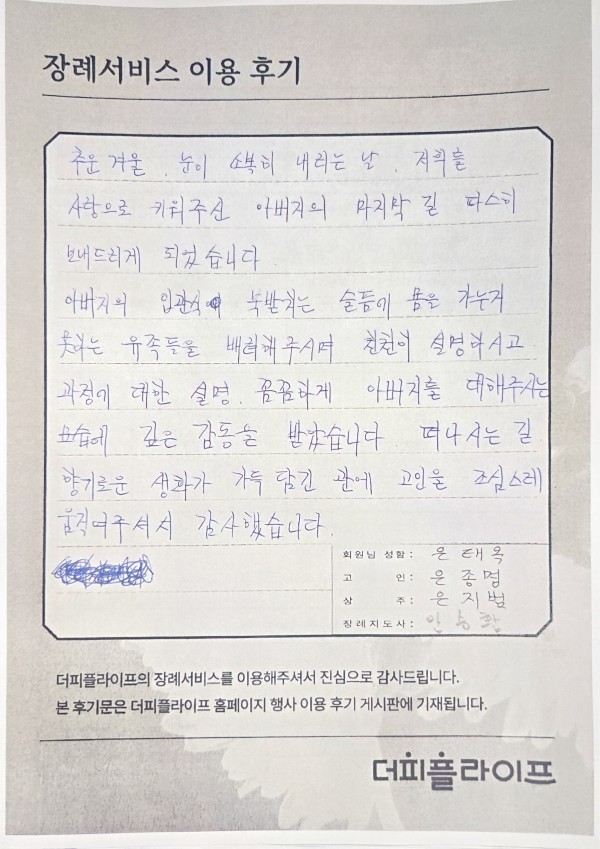 장례서비스 이용 후기
추운 겨울, 눈이 소복히 내리는 날, 저희를
사랑으로 키워주신 아버지의 마지막 길 따스히
보내드리게 되었습니다.
아버지의 입관식에 북받치는 슬픔에 몸을 가누지
못하는 유족들을 배려해주시며 천천히 설명하시고
과정에 대한 설명, 꼼꼼하게 아버지를 대해주시는
모습에 깊은 감동을 받았습니다. 떠나시는 길
향기로운 생화가 가득 담긴 관에 고인을 조심스레
움직여주셔서 감사했습니다.
회원님 성함: 은태옥
고 인: 은종명
상 주: 은지범
장례지도사:
더피플라이프의 장례서비스를 이용해주셔서 진심으로 감사드립니다.
본 후기문은 더피플라이프 홈페이지 행사 이용 후기 게시판에 기재됩니다.
더피플라이프